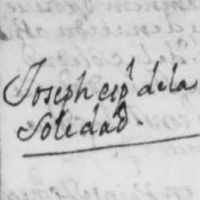 Joseph espl. de la
Soledad.